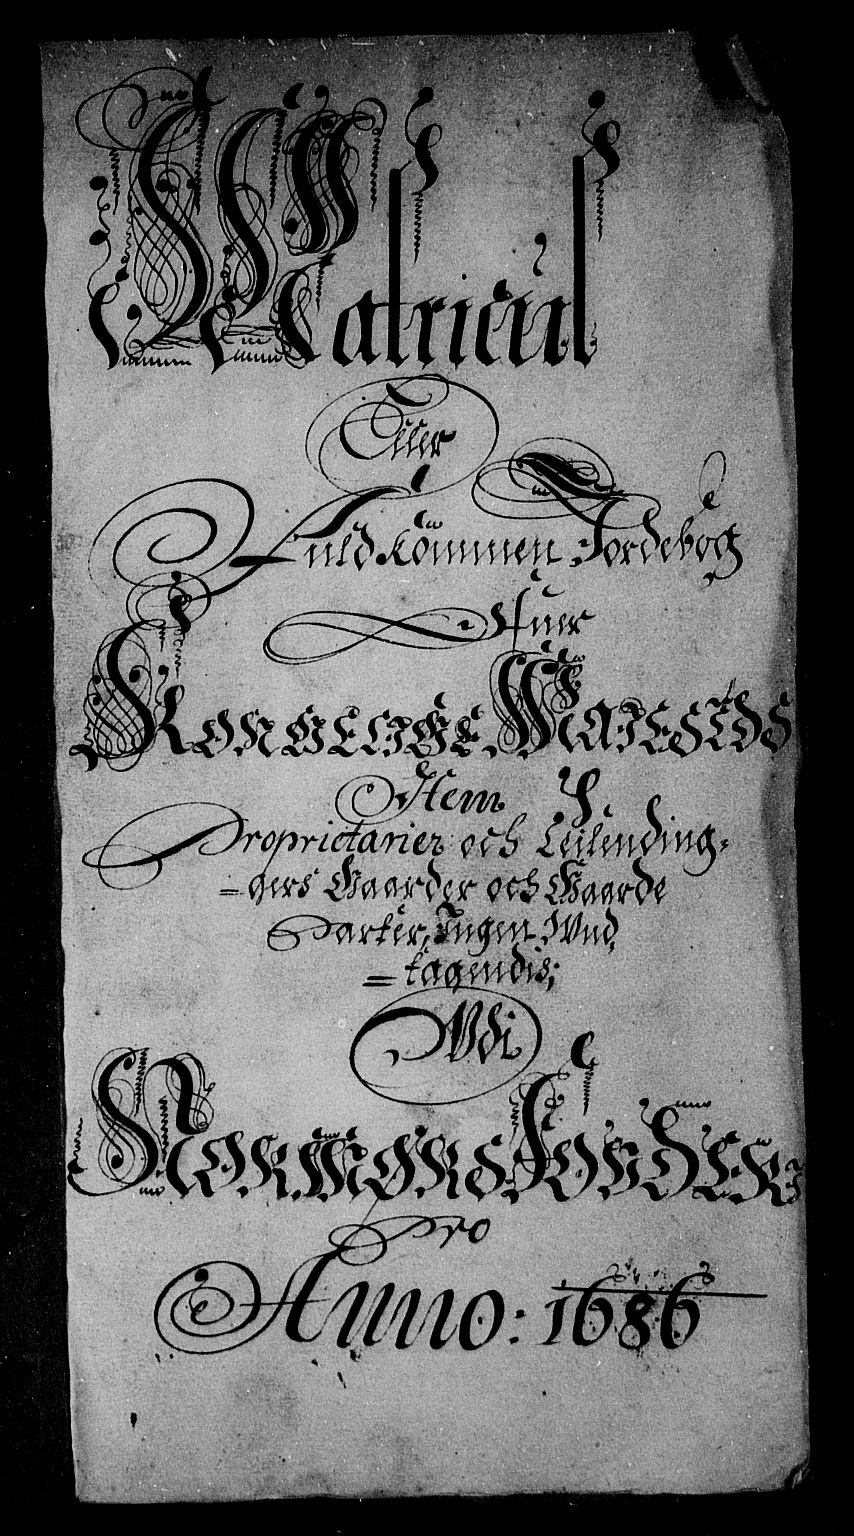 Matricul
Eller
Fuldkommen Jordebog
Ofuer
Kongelige Maiestds
Item
Proprietarier och Leilending-
=gers Gaarder och Gaarde
Parter, Ingen Und
=tagendis;
Udi
Normørs Fogderi
Pro
Anno: 1686